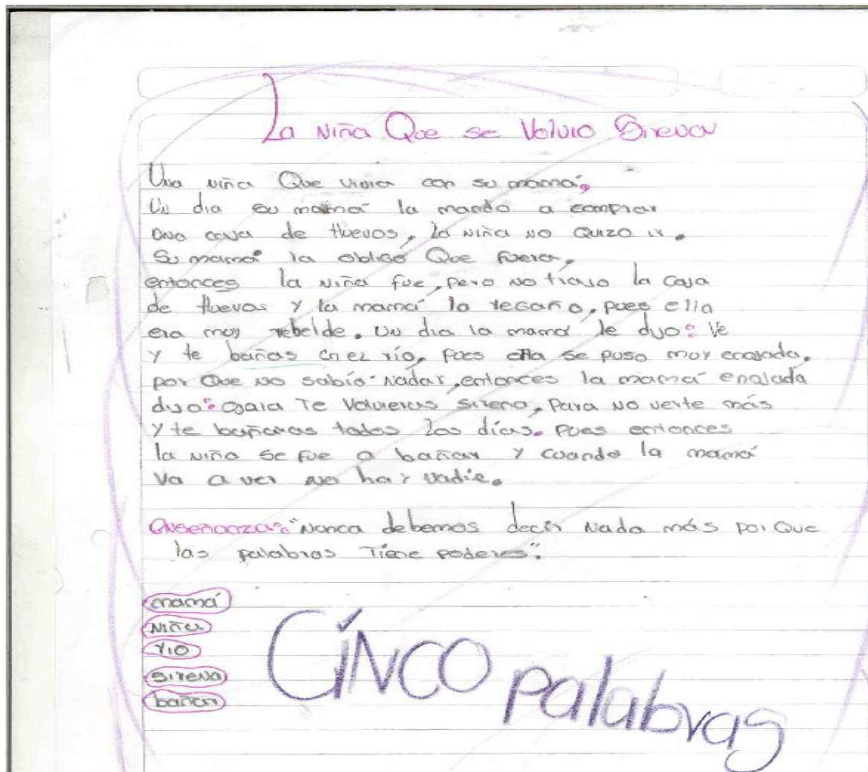 La niña Que se Volvio Sirena
Una niña Que vivia con su mamá,
Un dia su mamá la mando a comprar
una caja de Huevos, la niña no Quizo ir.
Su mamá la obligó Que fuera,
entonces la niña fue, pero no trajo la caja
de Huevos y la mamá la regaño, pues ella
era muy rebelde. un dia la mamá le dijo: Ve
y te bañas en el río, pues ella se puso muy enojada,
por Que no sabío nadar, entonces la mamá enojada
dijo: ojala Te Volvieras sirena, Para no verte más
y te bañaras todos los días. pues entonces
la niña se fue a bañar y cuando la mamá
Va a ver no hay nadie.
enseñanza: "Nunca debemos decir nada más por Que
las palabras Tiene poderes".
mamá
niña
rio
sirena
bañar
CINCO palabras